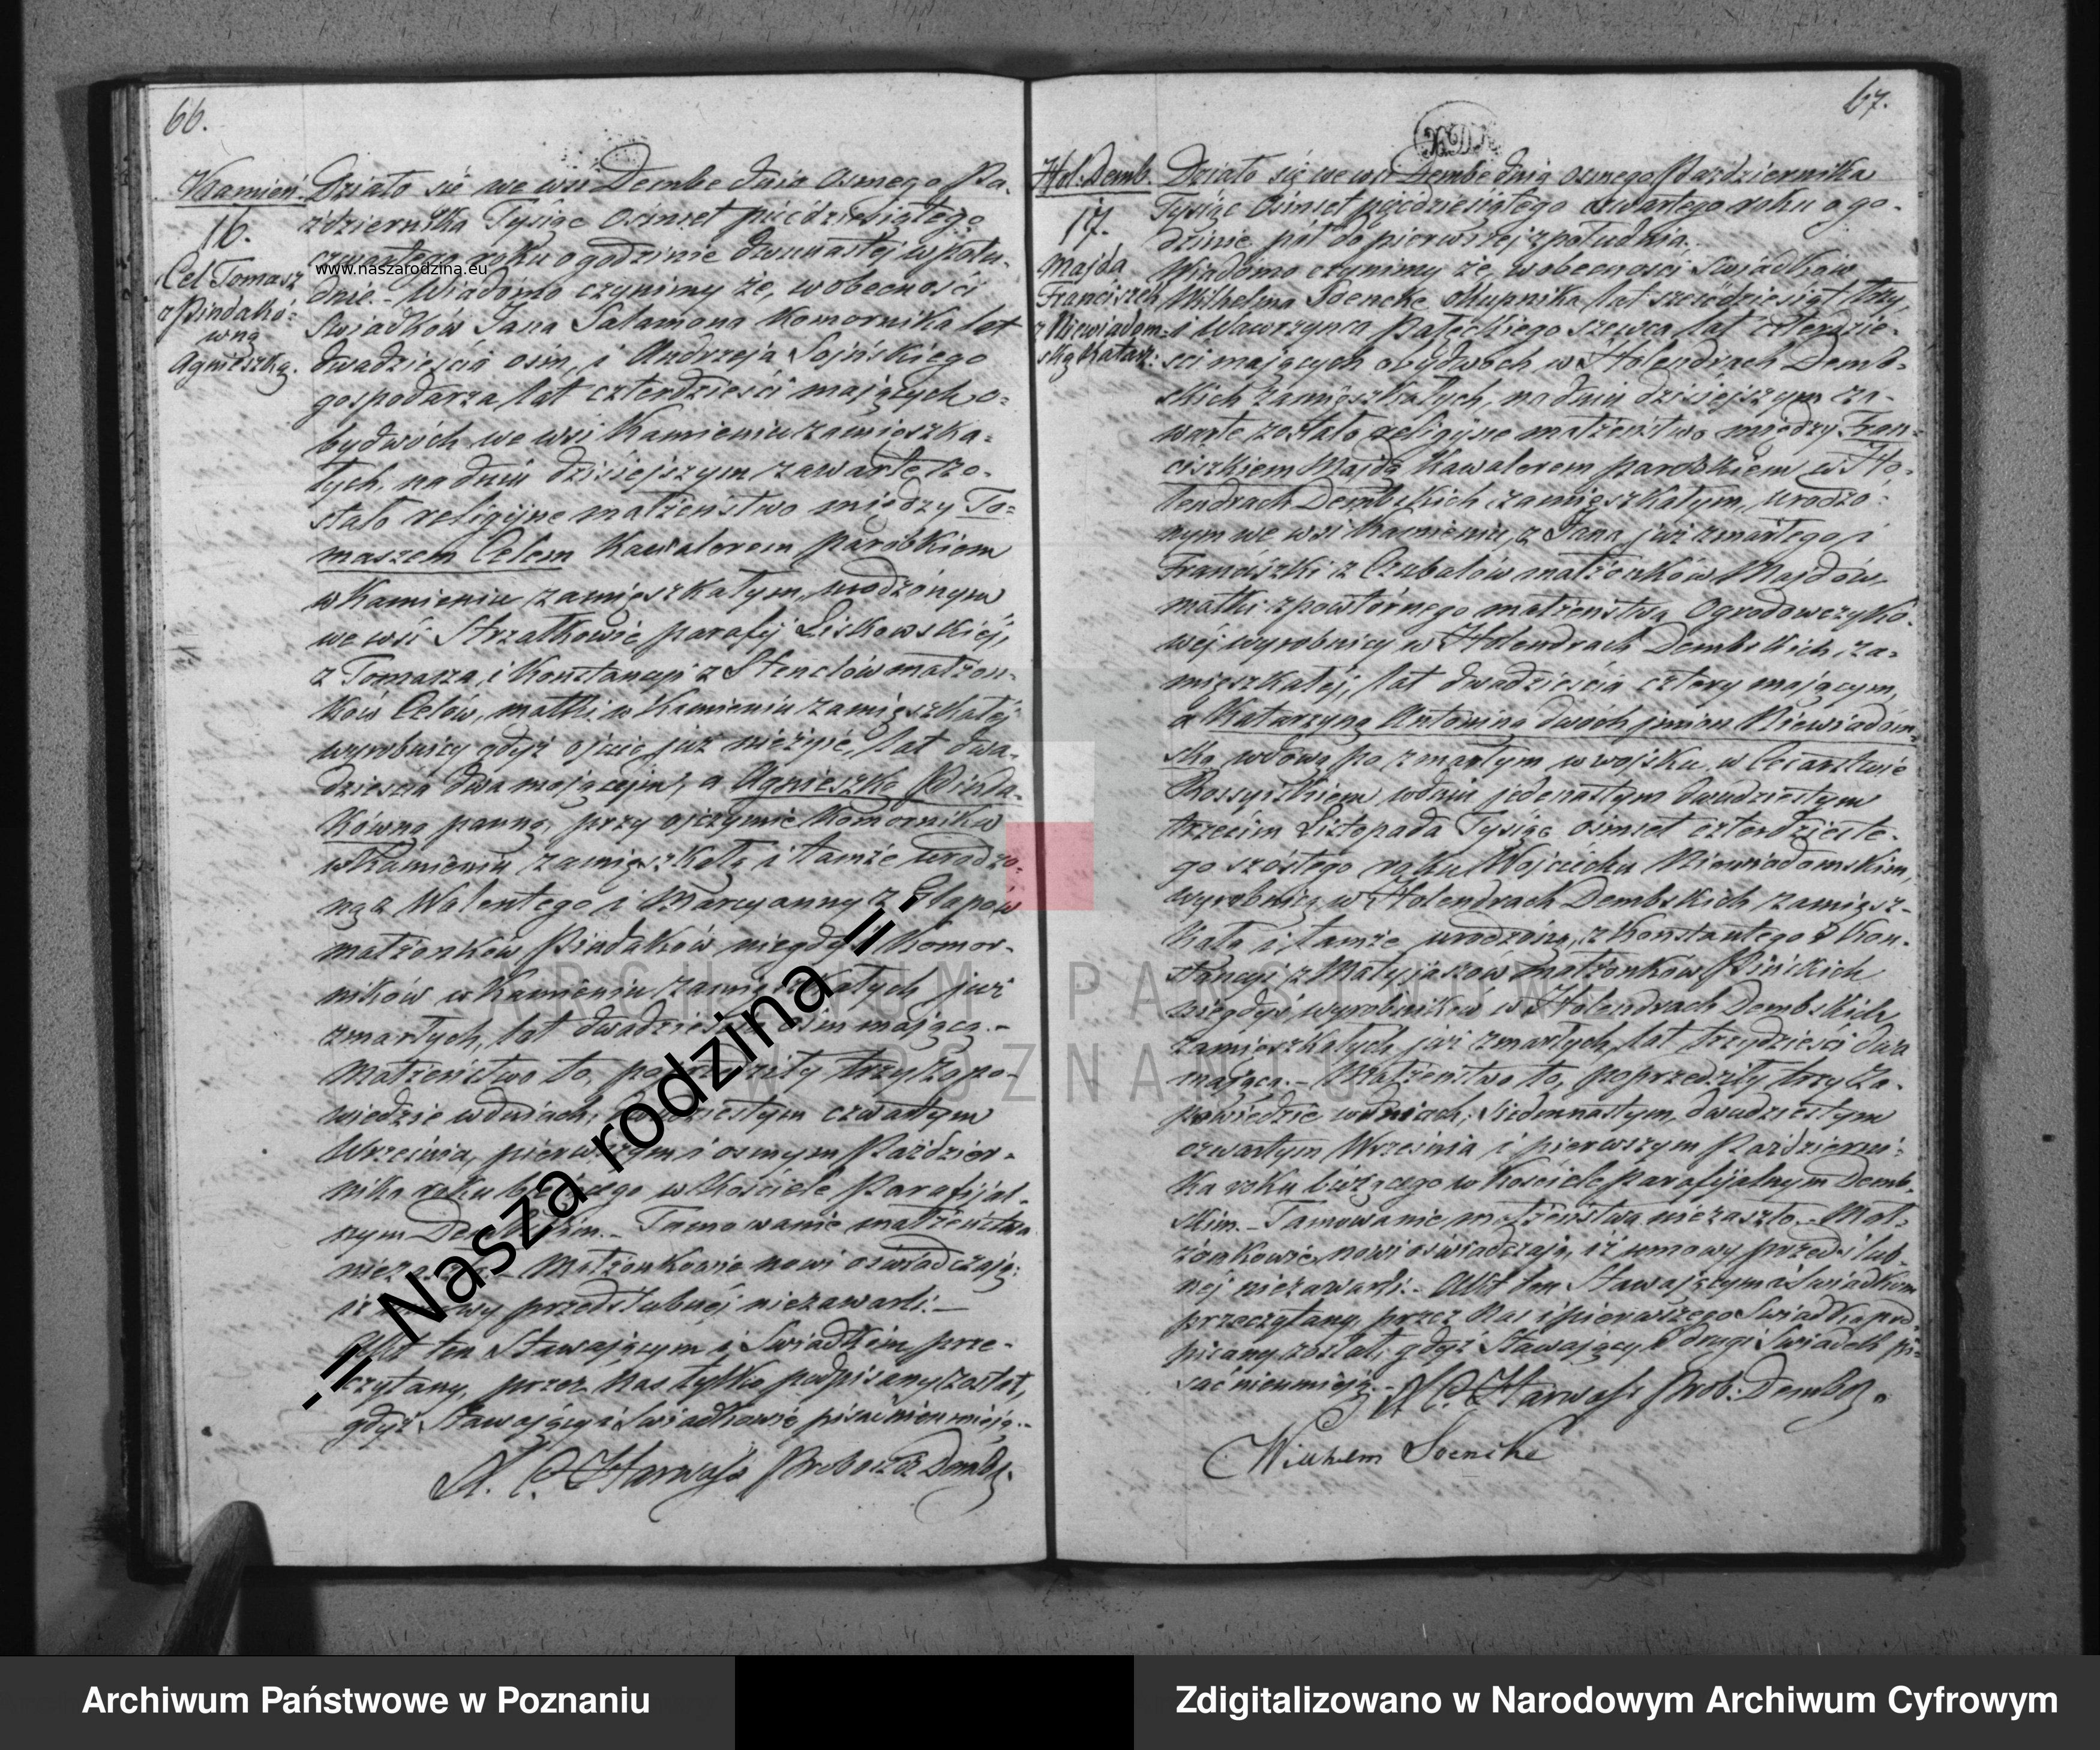 66.
Kamień.
16.
Cel Tomasz
z Pindakó-
wną
Agnieszką.
Działo się we wsi Dembe dnia osmego Pa-
ździernika Tysiąc osimset pięćdziesiątego
czwartego roku o godzinie dwunastej w połu-
www.naszarodzina.eu
dnie.- Wiadomo czynimy że, w obecności
Swiadków Jana Salamona Komornika lat
dwadzieścia osm, i Andrzeja Sojńskiego
gospodarza lat czterdzieści mających o-
bydwóch we wsi Kamieniu zamieszka-
łych, na dniu dzisiejszym zawarte zo-
stało religijne małżeństwo między To-
maszem Celem Kawalerem parobkiem
w Kamieniu zamięszkałym, urodzonym
we wsi Strzałkowie parafij Liskowskiej,
z Tomasza i Konstancyi z Stenclów małżon-
ków Celów, matki w Kamieniu zamięszkałej
wyrobnicy gdyż ojciec już nieżyje, lat dwa-
dzieścia dwa mającym, a Agnieszką Pinda-
kówną panną, przy ojczymie Komorniku
w Kamieniu zamięszkałą i tamże urodzo-
ną z Walentego i Marcyanny z Głapów
małżonków Pindaków niegdyś Komor-
ników w Kamieniu zamięszkałych już
zmarłych, lat dwadzieścia osim mającą.-
Małżeństwo to, poprzedziły trzy zapo-
wiedzie w dniach, dwudziestym czwartym
Września, pierwszym i osmym Paździer-
nika roku bieżącego w Kościele Parafijal-
nym Dembskim.- Tamowanie małżeństwa
niezaszło.- Małżonkowie nowi oświadczają:
iż umowy przedślubnej niezawarli.-
Akt ten Stawającym i Swiadkom prze-
czytany, przez Nas tylko podpisany został,
gdyż Stawający i Swiadkowie pisać nieumieją.-
-= Nasza rodzina =-
67.
Hol: Demb.
17.
Majda
Franciszek
z Niewiadom-
ską Katarz:
Działo się we wsi Dembe dnia osmego Października
Tysiąc osimset pięćdziesiątego czwartego roku o go-
dzinie pół do pierwszej z południa.
Wiadomo czynimy że, w obecności Swiadków
Wilhelma Soencke okupnika lat sześćdziesiąt trzy,
i Wawrzyńca Pałeckiego szewca lat czterdzie-
ści mających obydwóch w Holendrach Demb-
skich zamięszkałych, na dniu dzisiejszym za-
warte zostało religijne małżeństwo między Fran-
ciszkiem Majdą Kawalerem parobkiem w Ho-
lendrach Dembskich zamięszkałym, urodzo-
nym we wsi Kamieniu, z Jana już zmarłego i
Franciszki z Czubalów małżonków Majdów,
matki z powtórnego małżeństwa Ogrodowczyko-
wej wyrobnicy w Holendrach Dembskich, za-
mięszkałej, lat dwadzieścia cztery mającym,
a Katarzyną Antoniną dwóch imion Niewiadom-
ską wdową po zmarłym w wojsku w Cesarstwie
Rossyiskiem w dniu jedenastym dwudziestym
trzecim Listopada Tysiąc osimset czterdzieste-
go szóstego roku Wojciechu Niewiadomskim,
wyrobnicą w Holendrach Dembskich zamięsz-
kałą i tamże urodzoną, z Konstantego i Kon-
stancyi z Matyjasów małżonków
niegdyś wyrobników w Holendrach Dembskich
zamięszkałych już zmarłych, lat trzydzieści dwa
mającą.- Małżeństwo to, poprzedziły trzy za-
powiedzie w dniach, siedemnastym, dwudziestym
czwartym Września i pierwszym Październi-
ka roku bieżącego w Kościele Parafijalnym Demb-
skim.- Tamowanie małżeństwa niezaszło.- Mał-
żonkowie nowi oświadczają, iż umowy przedślub-
nej niezawarli.- Akt ten Stawającym i Swiadkom
przeczytany, przez Nas i pierwszego Swiadka pod-
pisany został, gdyż Stawający i drugi Swiadek pi-
sać nieumieją.-
Wilhelm Soencke
ARCHIWUM PAŃSTWOWE
W POZNANIU
Archiwum Państwowe w Poznaniu
Zdigitalizowano w Narodowym Archiwum Cyfrowym